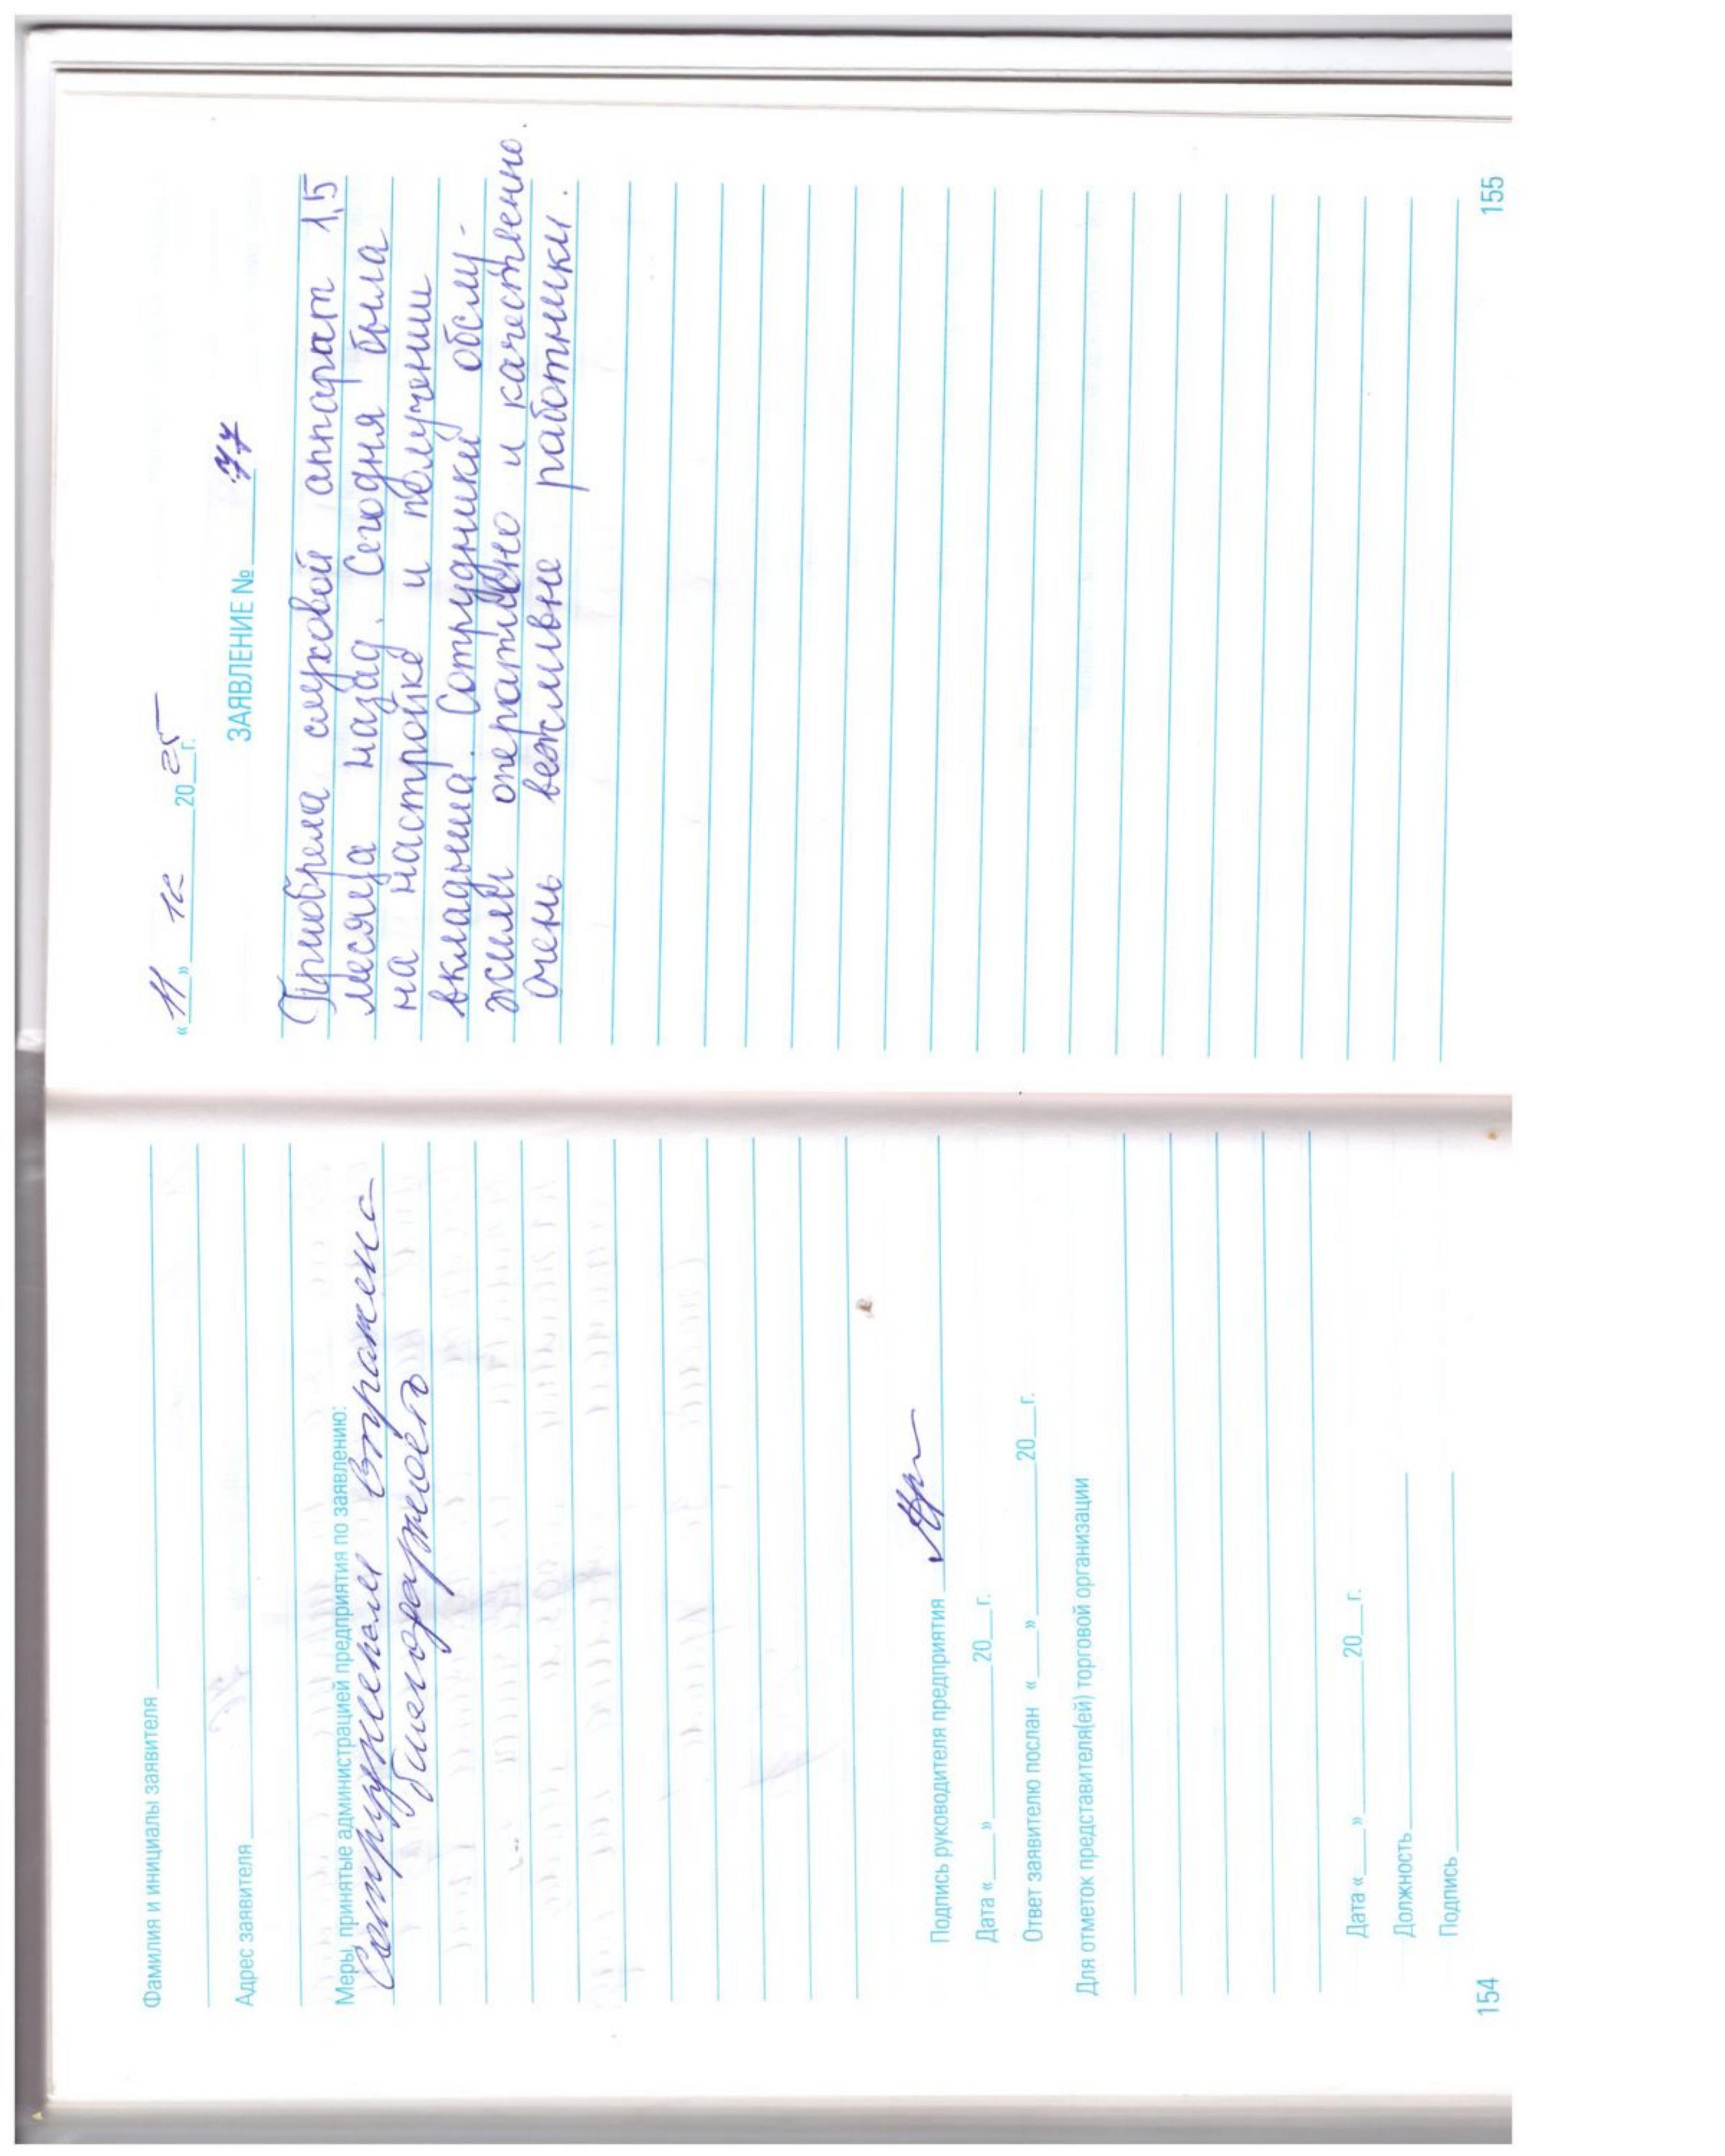 Фамилия и инициалы заявителя
Адрес заявителя
Меры, принятые администрацией предприятия по заявлению:
Сотрудникам выражена
благодарность
Подпись руководителя предприятия
Дата «___» ________ 20__г.
Ответ заявителю послан «___» ________ 20__г.
Для отметок представителя(ей) торговой организации
Дата «___» ________ 20__г.
Должность
Подпись
154
«11» 12 2025 г.
ЗАЯВЛЕНИЕ № 77
Приобрела слуховой аппарат 1,5
месяца назад. Сегодня была
на настройке и получении
вкладыша. Сотрудники обслу-
жили оперативно и качественно.
Очень вежливые работники.
155